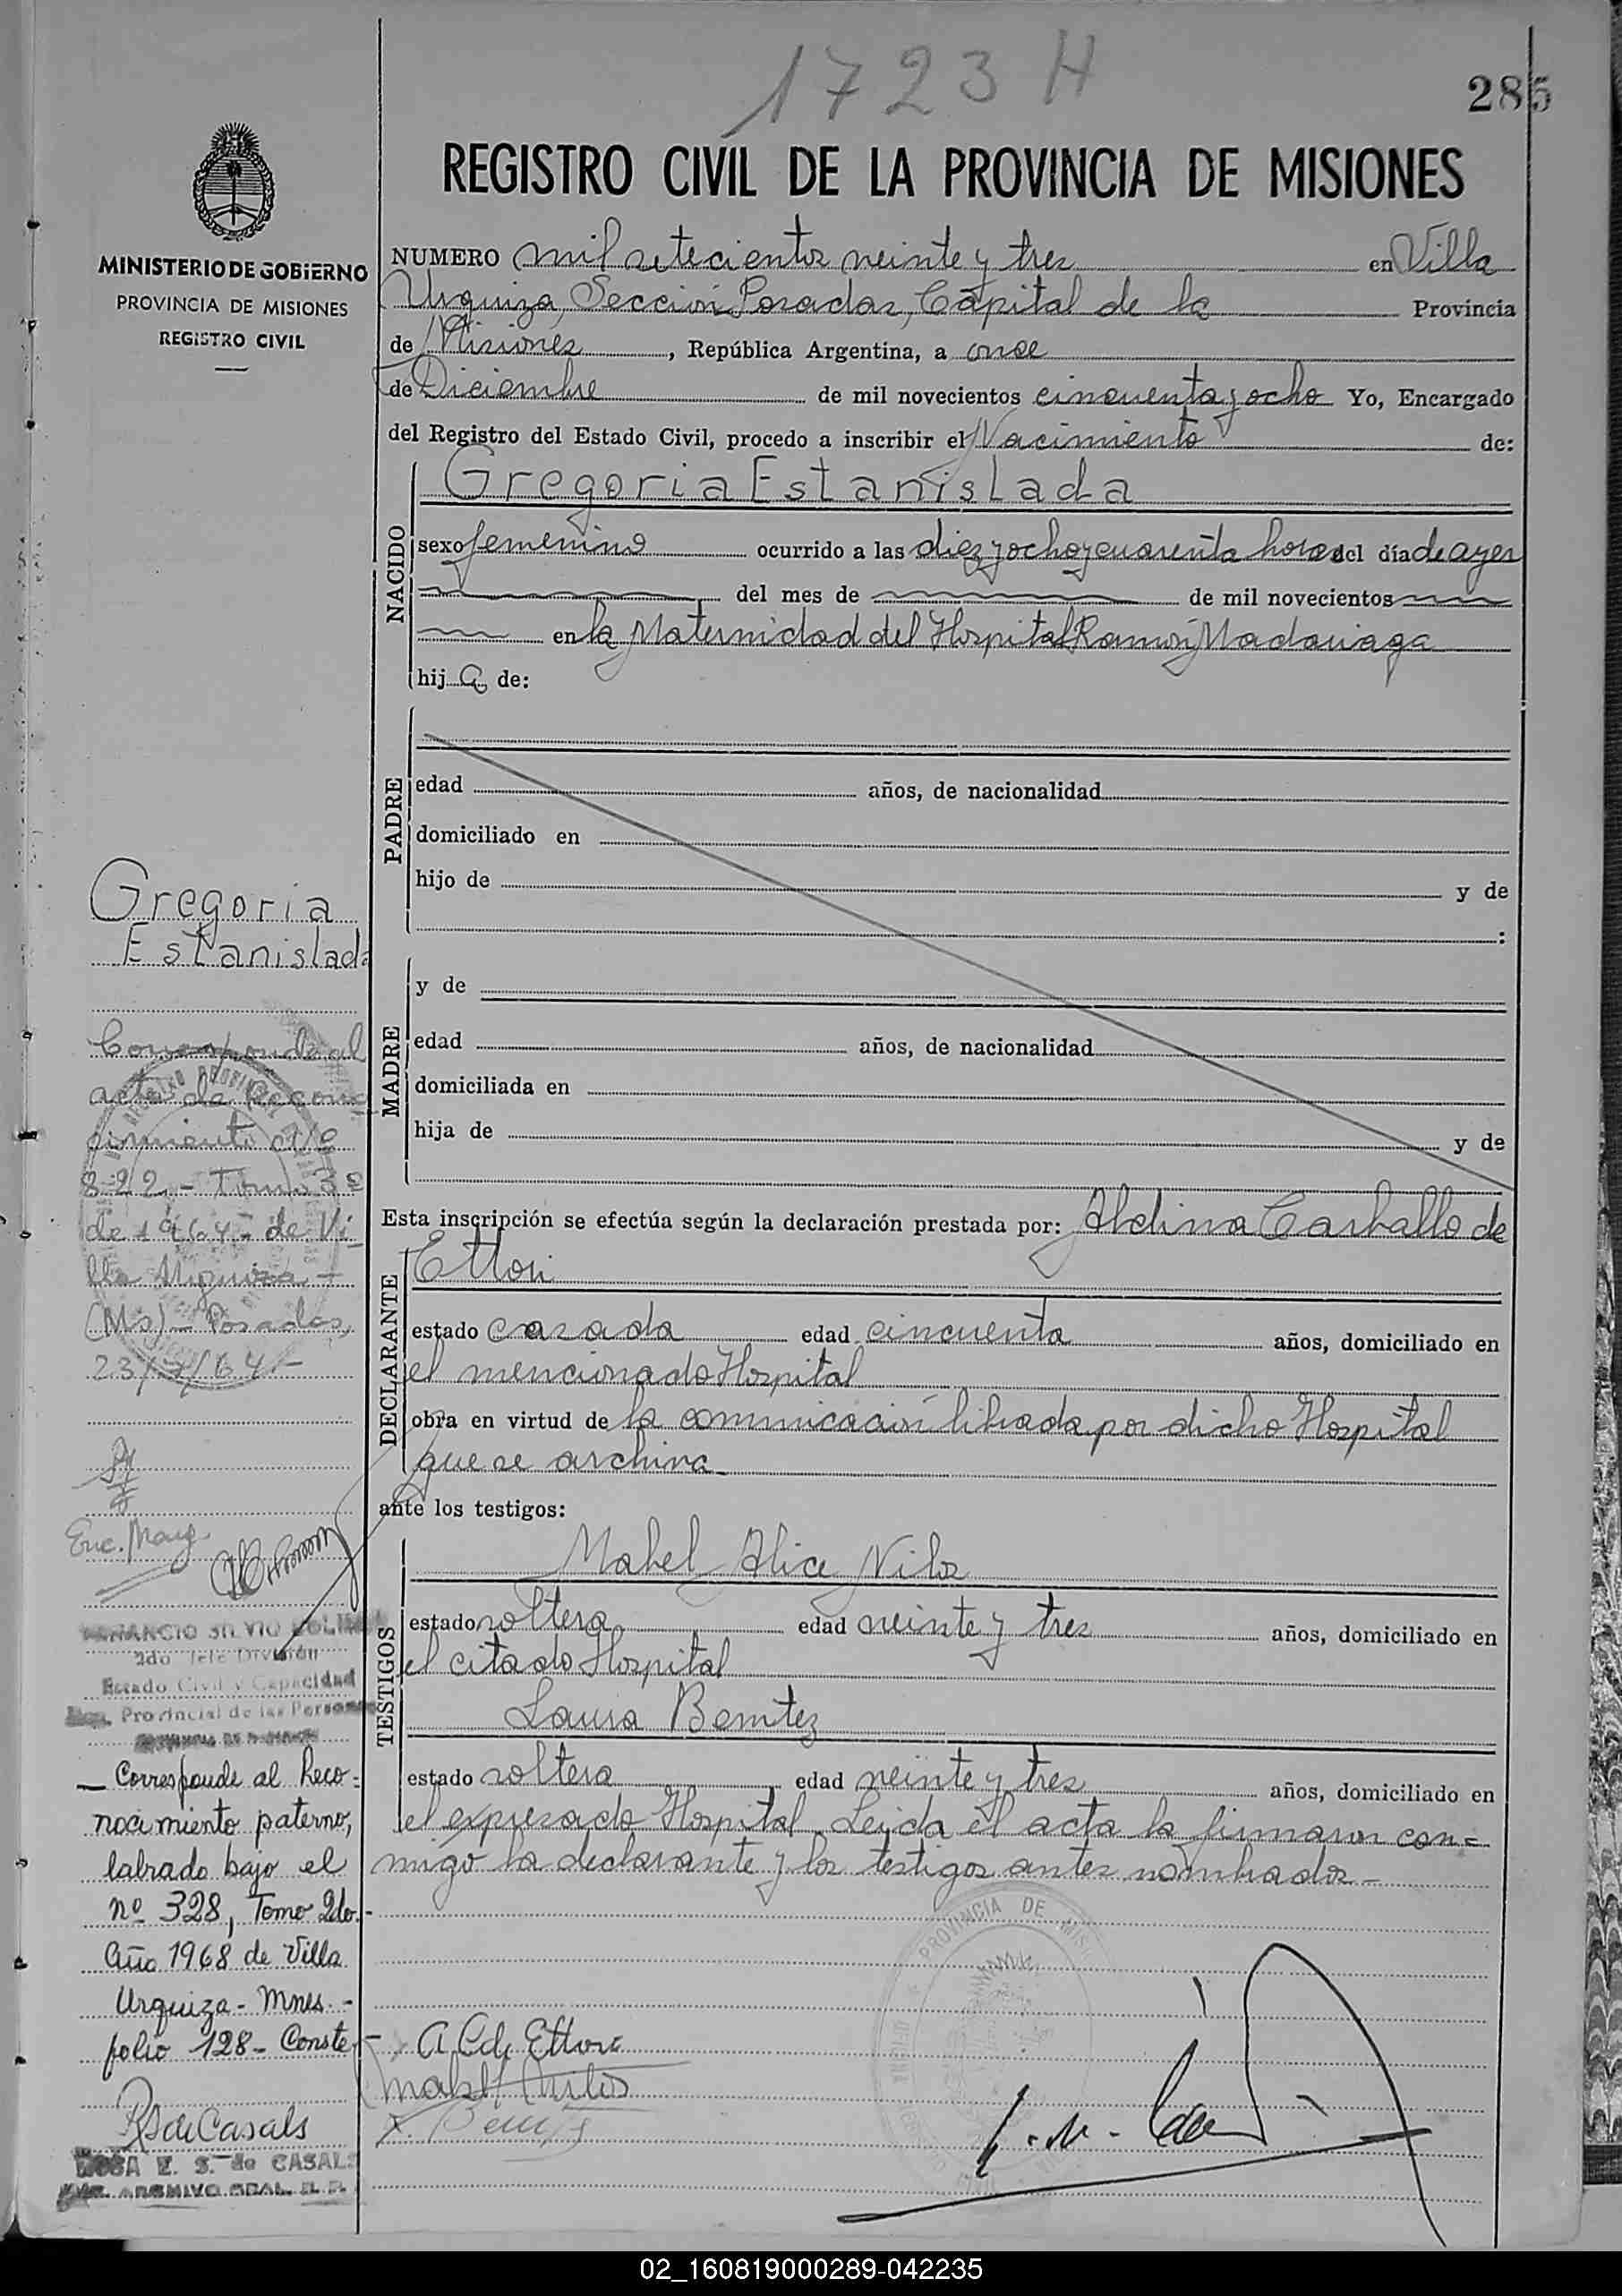 1723 H
285
REGISTRO CIVIL DE LA PROVINCIA DE MISIONES
MINISTERIO DE GOBIERNO
PROVINCIA DE MISIONES
REGISTRO CIVIL
NUMERO mil setecientos veinte y tres en Villa
Urquiza, Sección Posadas, Capital de la Provincia
de Misiones, República Argentina, a once
de Diciembre de mil novecientos cincuenta y ocho Yo, Encargado
del Registro del Estado Civil, procedo a inscribir el Nacimiento de:
NACIDO
Gregoria Estanislada
sexo femenino ocurrido a las diez y ocho y cuarenta horas del día de ayer
del mes de de mil novecientos
en la Maternidad del Hospital Ramón Madariaga
hija de:
PADRE
edad años, de nacionalidad
domiciliado en
hijo de y de
:
MADRE
y de
edad años, de nacionalidad
domiciliada en
hija de y de
Esta inscripción se efectúa según la declaración prestada por: Abelina Carballo de
DECLARANTE
Ettori
estado casada edad cincuenta años, domiciliado en
el mencionado Hospital
obra en virtud de la comunicación librada por dicho Hospital
que se archiva
ante los testigos:
TESTIGOS
Mabel Alice Nilos
estado soltera edad veinte y tres años, domiciliado en
el citado Hospital
Laura Benitez
estado soltera edad veinte y tres años, domiciliado en
el expresado Hospital. Leída el acta la firmaron con=
migo la declarante y los testigos antes nombrados.-
A C de Ettori
Mabel Nilos
Gregoria
Estanislada
Corresponde al
acta de Recono
cimiento Nº
822 - Tomo 3º
de 1964 - de Vi_
lla Urquiza -
(Ms) - Posadas,
23/7/64.-
Enc. Marg.
VENANCIO SILVIO
2do Jefe División
Estado Civil y Capacidad
Provincial de las Personas
PROVINCIA DE MISIONES
- Corresponde al Reco=
nocimiento paterno,
labrado bajo el
nº 328, Tomo 2do.-
Año 1968 de Villa
Urquiza - Mnes. -
folio 128 - Conste -
R S de Casals
ROSA E. S. de CASALS
ENC. ARCHIVO GRAL. R. P.
PROVINCIA DE MISIONES
02_160819000289-042235